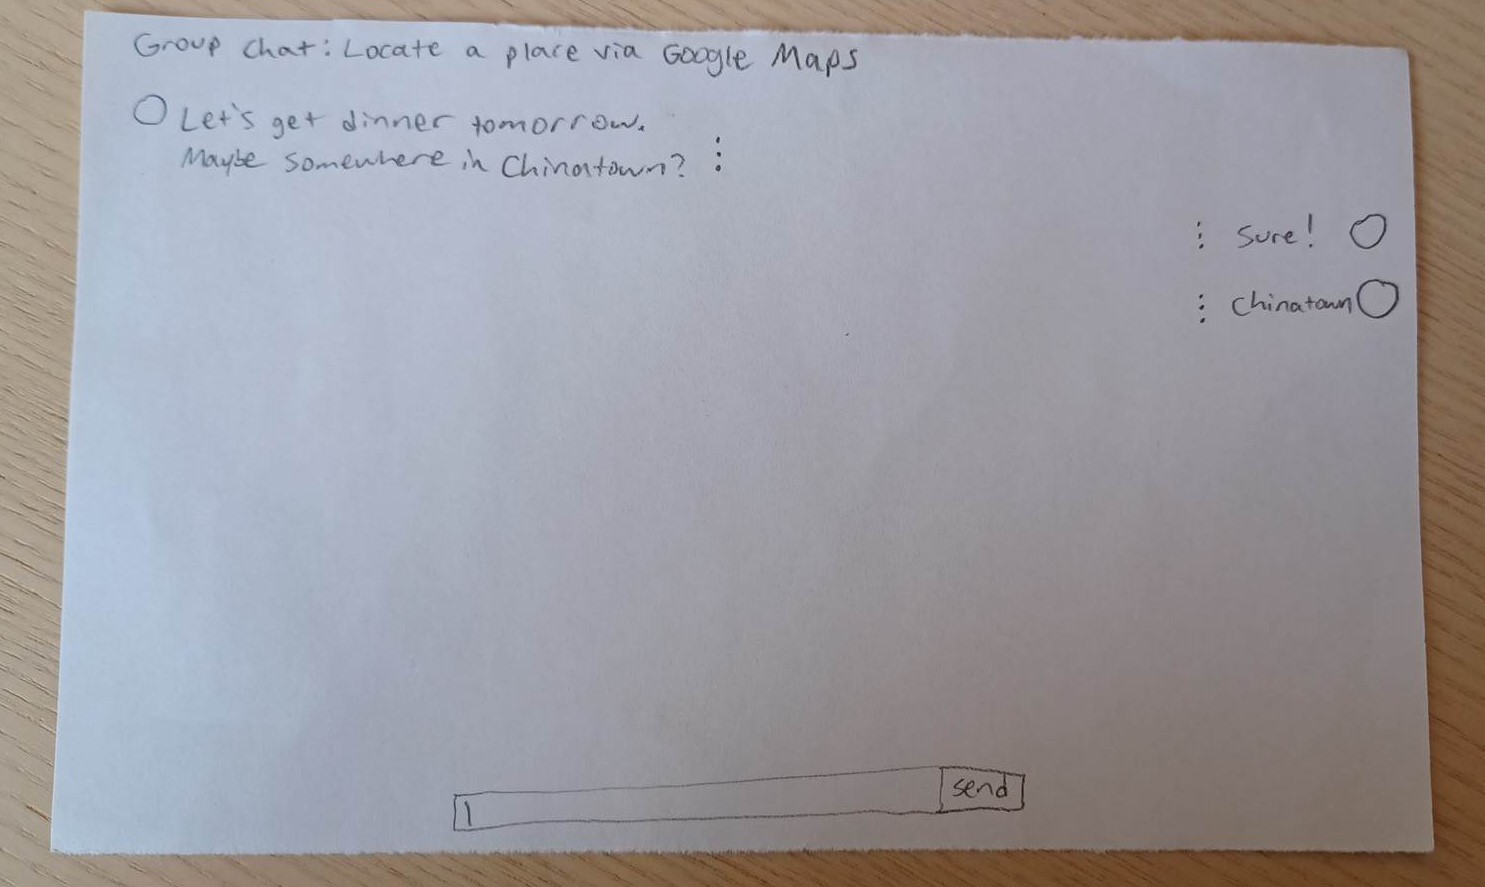 Group Chat: Locate a place via Google Maps
Let's get dinner tomorrow.
Maybe somewhere in Chinatown?
Sure!
Chinatown
send